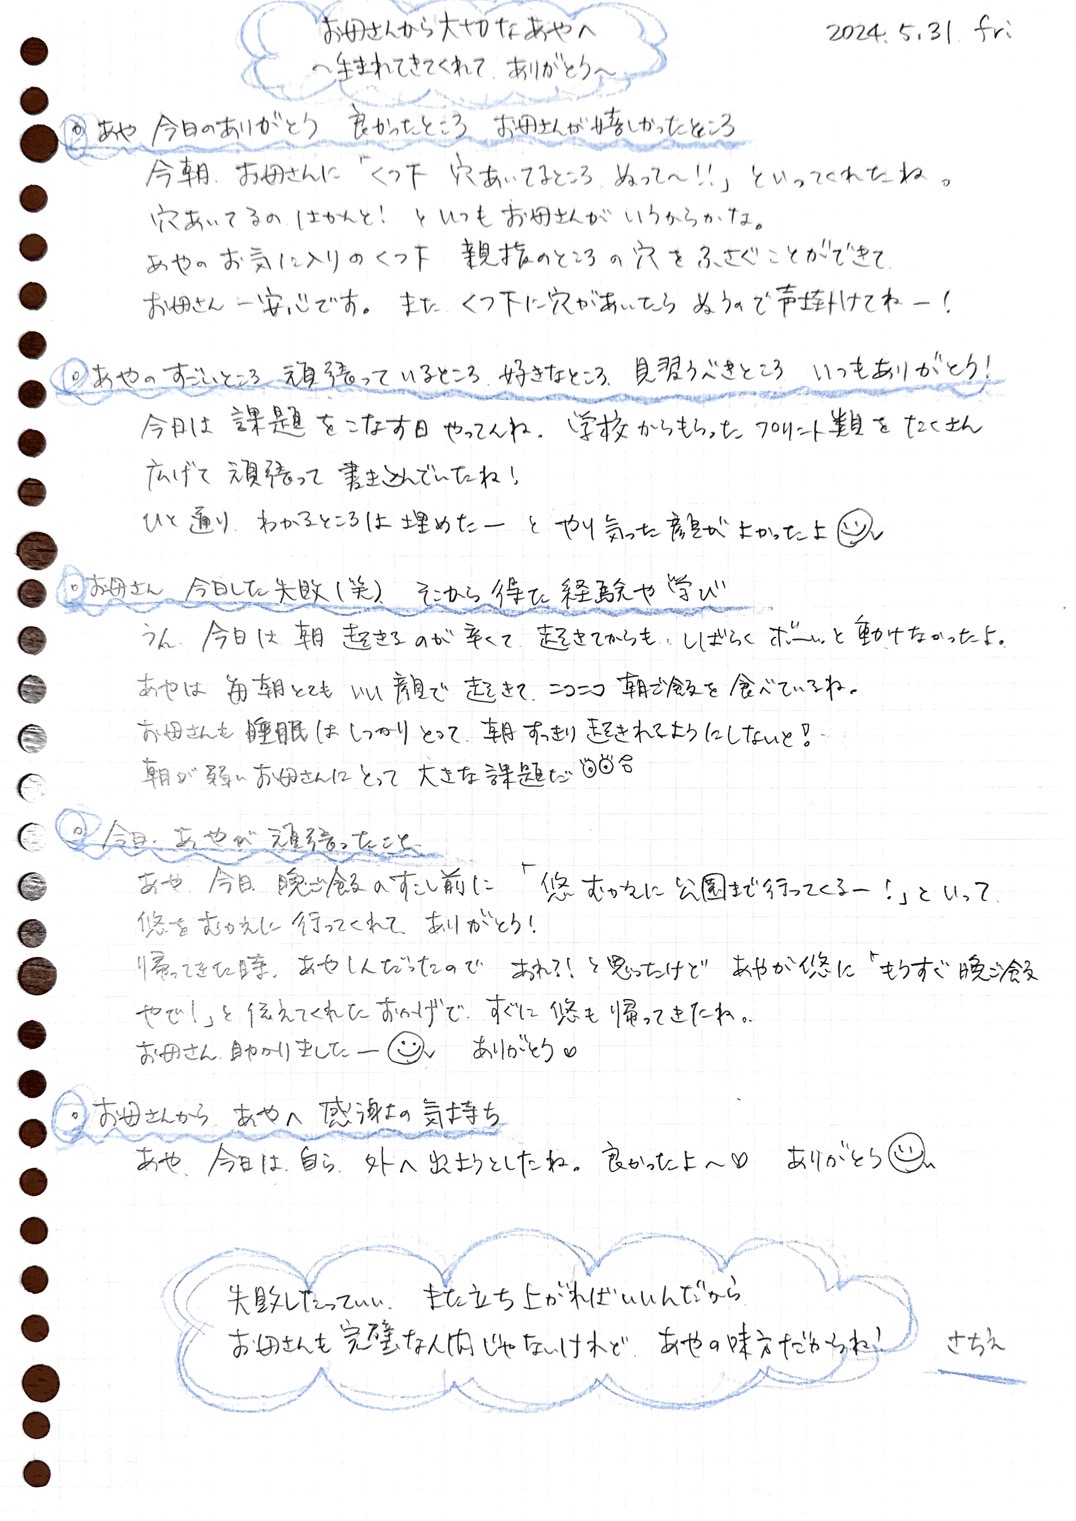 お母さんから大切なあやへ
2024.5.31 fri
〜生まれてきてくれて ありがとう〜
あや 今日のありがとう 良かったところ お母さんが嬉しかったところ
今朝、お母さんに「くつ下 穴あいてるところ ぬって〜!!」といってくれたね。
穴あいてるの はかんと! といつもお母さんがいうからかな。
あやのお気に入りのくつ下 親指のところの穴をふさぐことができて
お母さん一安心です。また くつ下に穴があいたら ぬうので声掛けてねー!
あやのすごいところ 頑張っているところ 好きなところ 見習うべきところ いつもありがとう!
今日は課題をこなす日やってんね。学校からもらったプリント類をたくさん
広げて頑張って書き込んでいたね!
ひと通り、わかるところは埋めたーと やり気った顔がよかったよ
お母さん 今日した失敗(笑) そこから得た経験や学び
うん、今日は朝起きるのが辛くて、起きてからも、しばらくボーッと動けなかったよ。
あやは毎朝とてもいい顔で起きて、ニコニコ朝ご飯を食べているね。
お母さんも睡眠はしっかりとって、朝すっきり起きれるようにしないと!
朝が弱いお母さんにとって大きな課題だ
今日、あやが頑張ったこと
あや、今日、晩ご飯のすこし前に「悠むかえに公園まで行ってくるー!」といって
悠をむかえに行ってくれて、ありがとう!
帰ってきた時、あや1人だったので あれ?!と思ったけど あやが悠に「もうすぐ晩ご飯
やで!」と伝えてくれたおかげで、すぐに悠も帰ってきたね。
お母さん助かりましたー ありがとう♡
お母さんから あやへ 感謝の気持ち
あや、今日は、自ら、外へ出ようとしたね。良かったよ〜♡ ありがとう
失敗したっていい、また立ち上がればいいんだから
お母さんも完璧な人間じゃないけれど、あやの味方だからね!
さちえ